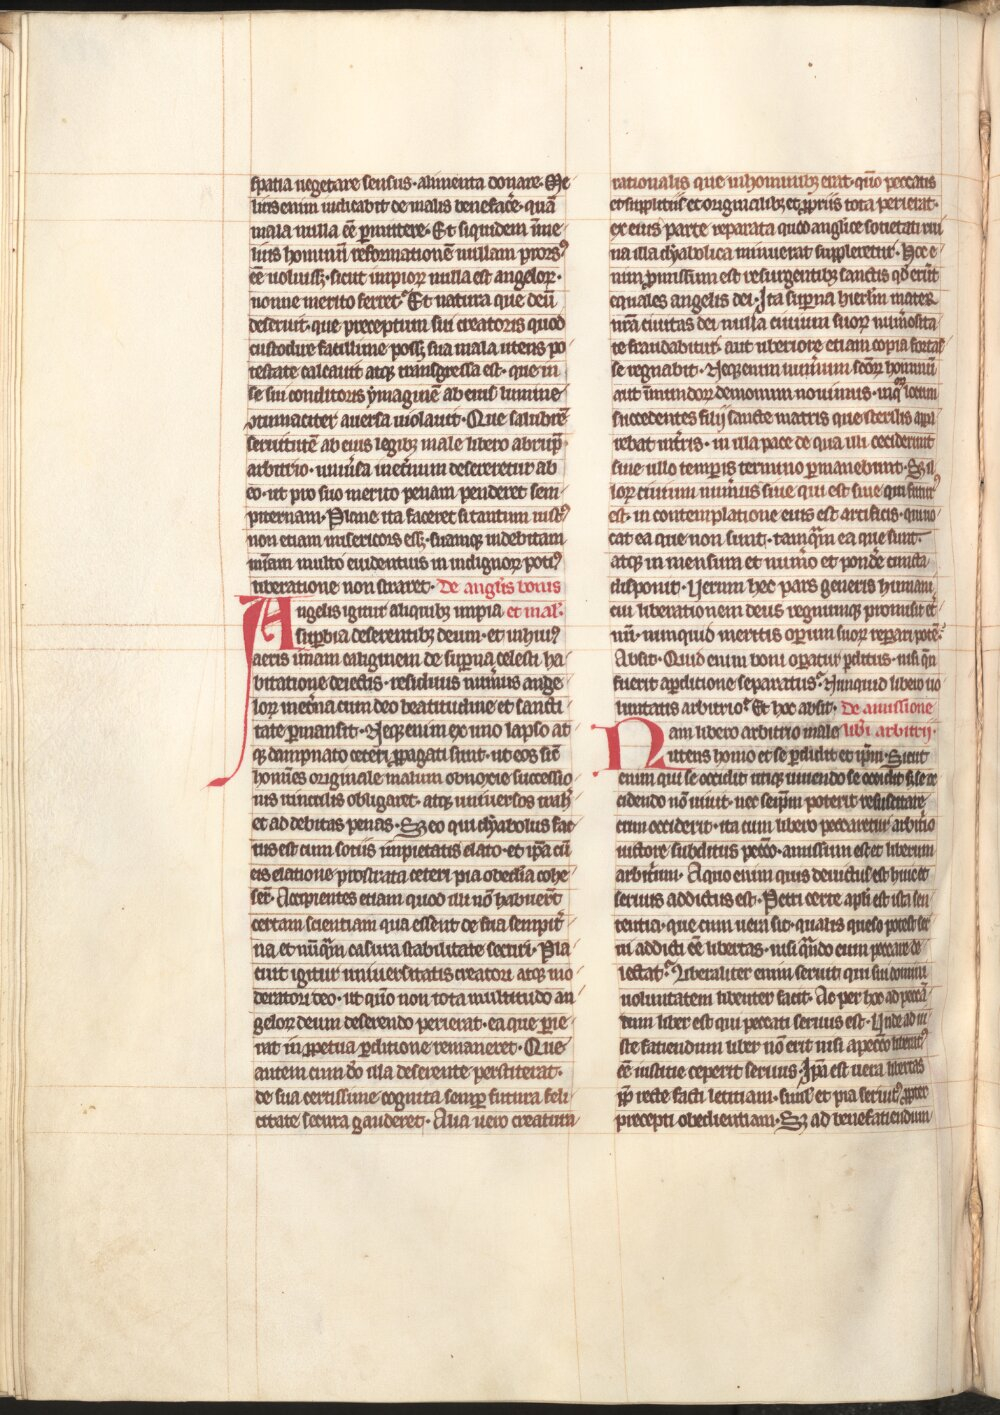 spatia uegetare sensus · alimenta donare · Me
lius enim iudicabit de malis benefac̄e · quā
mala nulla eē ꝑmittere · Et siquidem ī me
lius hominū reformationē nullam prorsꝰ
eē uoluiss; sicut impioꝝ nulla est angeloꝝ ·
nonne merito fieret · Et natura que deū
deseruit · que preceptum sui creatoris quod
custodire facillime poss; sua mala utens po
testate calcauit atqꝫ transgressa est · que in
se sui conditoris ymaginē ab eius lumine
ꝯtumaciter auersa uiolauit · Que salubrē
seruitutē ab eius legibꝫ male libero abrup̄
arbitrio · uniu̓sa in et̓num desereretur ab
eo · ut pro suo merito penam penderet sem
piternam · Plane ita faceret si tantum iustꝰ
non etiam misericors ess; suamqꝫ indebitam
mīam multo euidentius in indignoꝝ potiꝰ
liberatione non straret · De angl̓is bonis
Angelis igitur aliquibꝫ impia et mal̓ ·
suꝑbia deserentibꝫ deum · et in huiꝰ
aeris imam caliginem de suꝑna celesti ha
bitatione deiectis · residuus num̓us ange
loꝝ in et̓na cum deo beatitudine et sancti
tate ꝑmansit · Neqꝫ enim ex uno lapso at
qꝫ dampnato ceteri ꝓpagati sunt · ut eos sic̄
homīes originale malum obnoxie successio
nis uinculis obligaret · atqꝫ uniuersos trah̓
et ad debitas penas · Sꝫ eo qui dyabolus fac
tus est cum sotiis impietatis elato · et ip̄a cū
eis elatione prostrata ceteri pia obediā cohe
ser̄ · Accipientes etiam quod illi nō habuer̄t
certam scientiam qua essent de sua sempit̓
na et nūqm̄ casura stabilitate securi · Pla
cuit igitur uniuersitatis creatori atqꝫ mo
deratori deo · ut qūo non tota multitudo an
geloꝝ deum deserendo perierat · ea que ꝑie
rat in ꝑpetua ꝑditione remaneret · Que
autem cum dō illa deserente perstiterat ·
de sua certissime cognita semꝑ futura feli
citate secura gauderet · Alia uero creatura
rationalis que in hominibꝫ erat · qūo peccatis
et suppliciis et originalibꝫ et ꝓpriis tota perierat ·
ex eius parte reparata quod anglice societati rui
na illa dyabolica minuerat suppleretur · Hoc e
nim ꝓmissum est resurgentibꝫ sanctis qd̓ erūt
equales angelis dei · Ita suꝑna hierl̄m mater
nr̄a ciuitas dei nulla ciuium suoꝝ num̓osita
te fraudabitur · aut uberiore etiam copia fortas
se regnabit · Neqꝫ enim num̓um sc̄oꝝ hominū
aut inmundoꝝ demonum nouimus · in qͦꝝ locum
succedentes filij sancte matris que sterilis appa
rebat in t̓ris · in illa pace de qua illi ceciderunt
sine ullo temporis termino ꝑmanebunt · Sꝫ il
loꝝ ciuium num̓us siue qui est siue qui futurꝰ
est · in contemplatione eius est artificis · qui uo
cat ea que non sunt · tamqm̄ ea que sunt ·
atqꝫ in mensura et num̓o et pond̓e cuncta
disponit · Uerum hec pars generis humani
cui liberationem deus regnumqꝫ promisit et̓
nū · nunquid meritis oꝑum suoꝝ reꝑari potē ·
Absit · Quid enim boni oꝑatur ꝑditus · nisi qn̄
fuerit a ꝑditione separatus · Nunquid libero uo
luntatis arbitrio · Et hoc absit · De amissione
Nam libero arbitrio male lib̓i arbitrij ·
utens homo et se ꝑdidit et ip̄m · Sicut
enim qui se occidit utiqꝫ uiuendo se occidit sꝫ se oc
cidendo nō uiuit · nec seip̄m poterit resuscitare
cum occiderit · ita cum libero peccaretur arbit̓io
uictore subditus pecc̄o · amissum est et liberum
arbit̓ium · A quo enim quis deuictus est huic et
seruus addictus est · Petri certe apl̓i est ista sen
tentia · que cum uera sit · qualis queso potest ser
ui addicti eē libertas · nisi qn̄do eum peccare de
lectat · Liberaliter enim seruit qui sui domini
uoluntatem libenter facit · Ac per hoc ad peccā
dum liber est qui peccati seruus est · Unde ad iu
ste faciendum liber nō erit nisi a pecc̄o liberatꝰ
eē iusticie ceperit seruus · Ip̄a est uera libertas
ꝓp̄ recte facti letitiam · simul et pia seruitꝰ ꝓpter
precepti obedientiam · Sꝫ ad benefaciendum